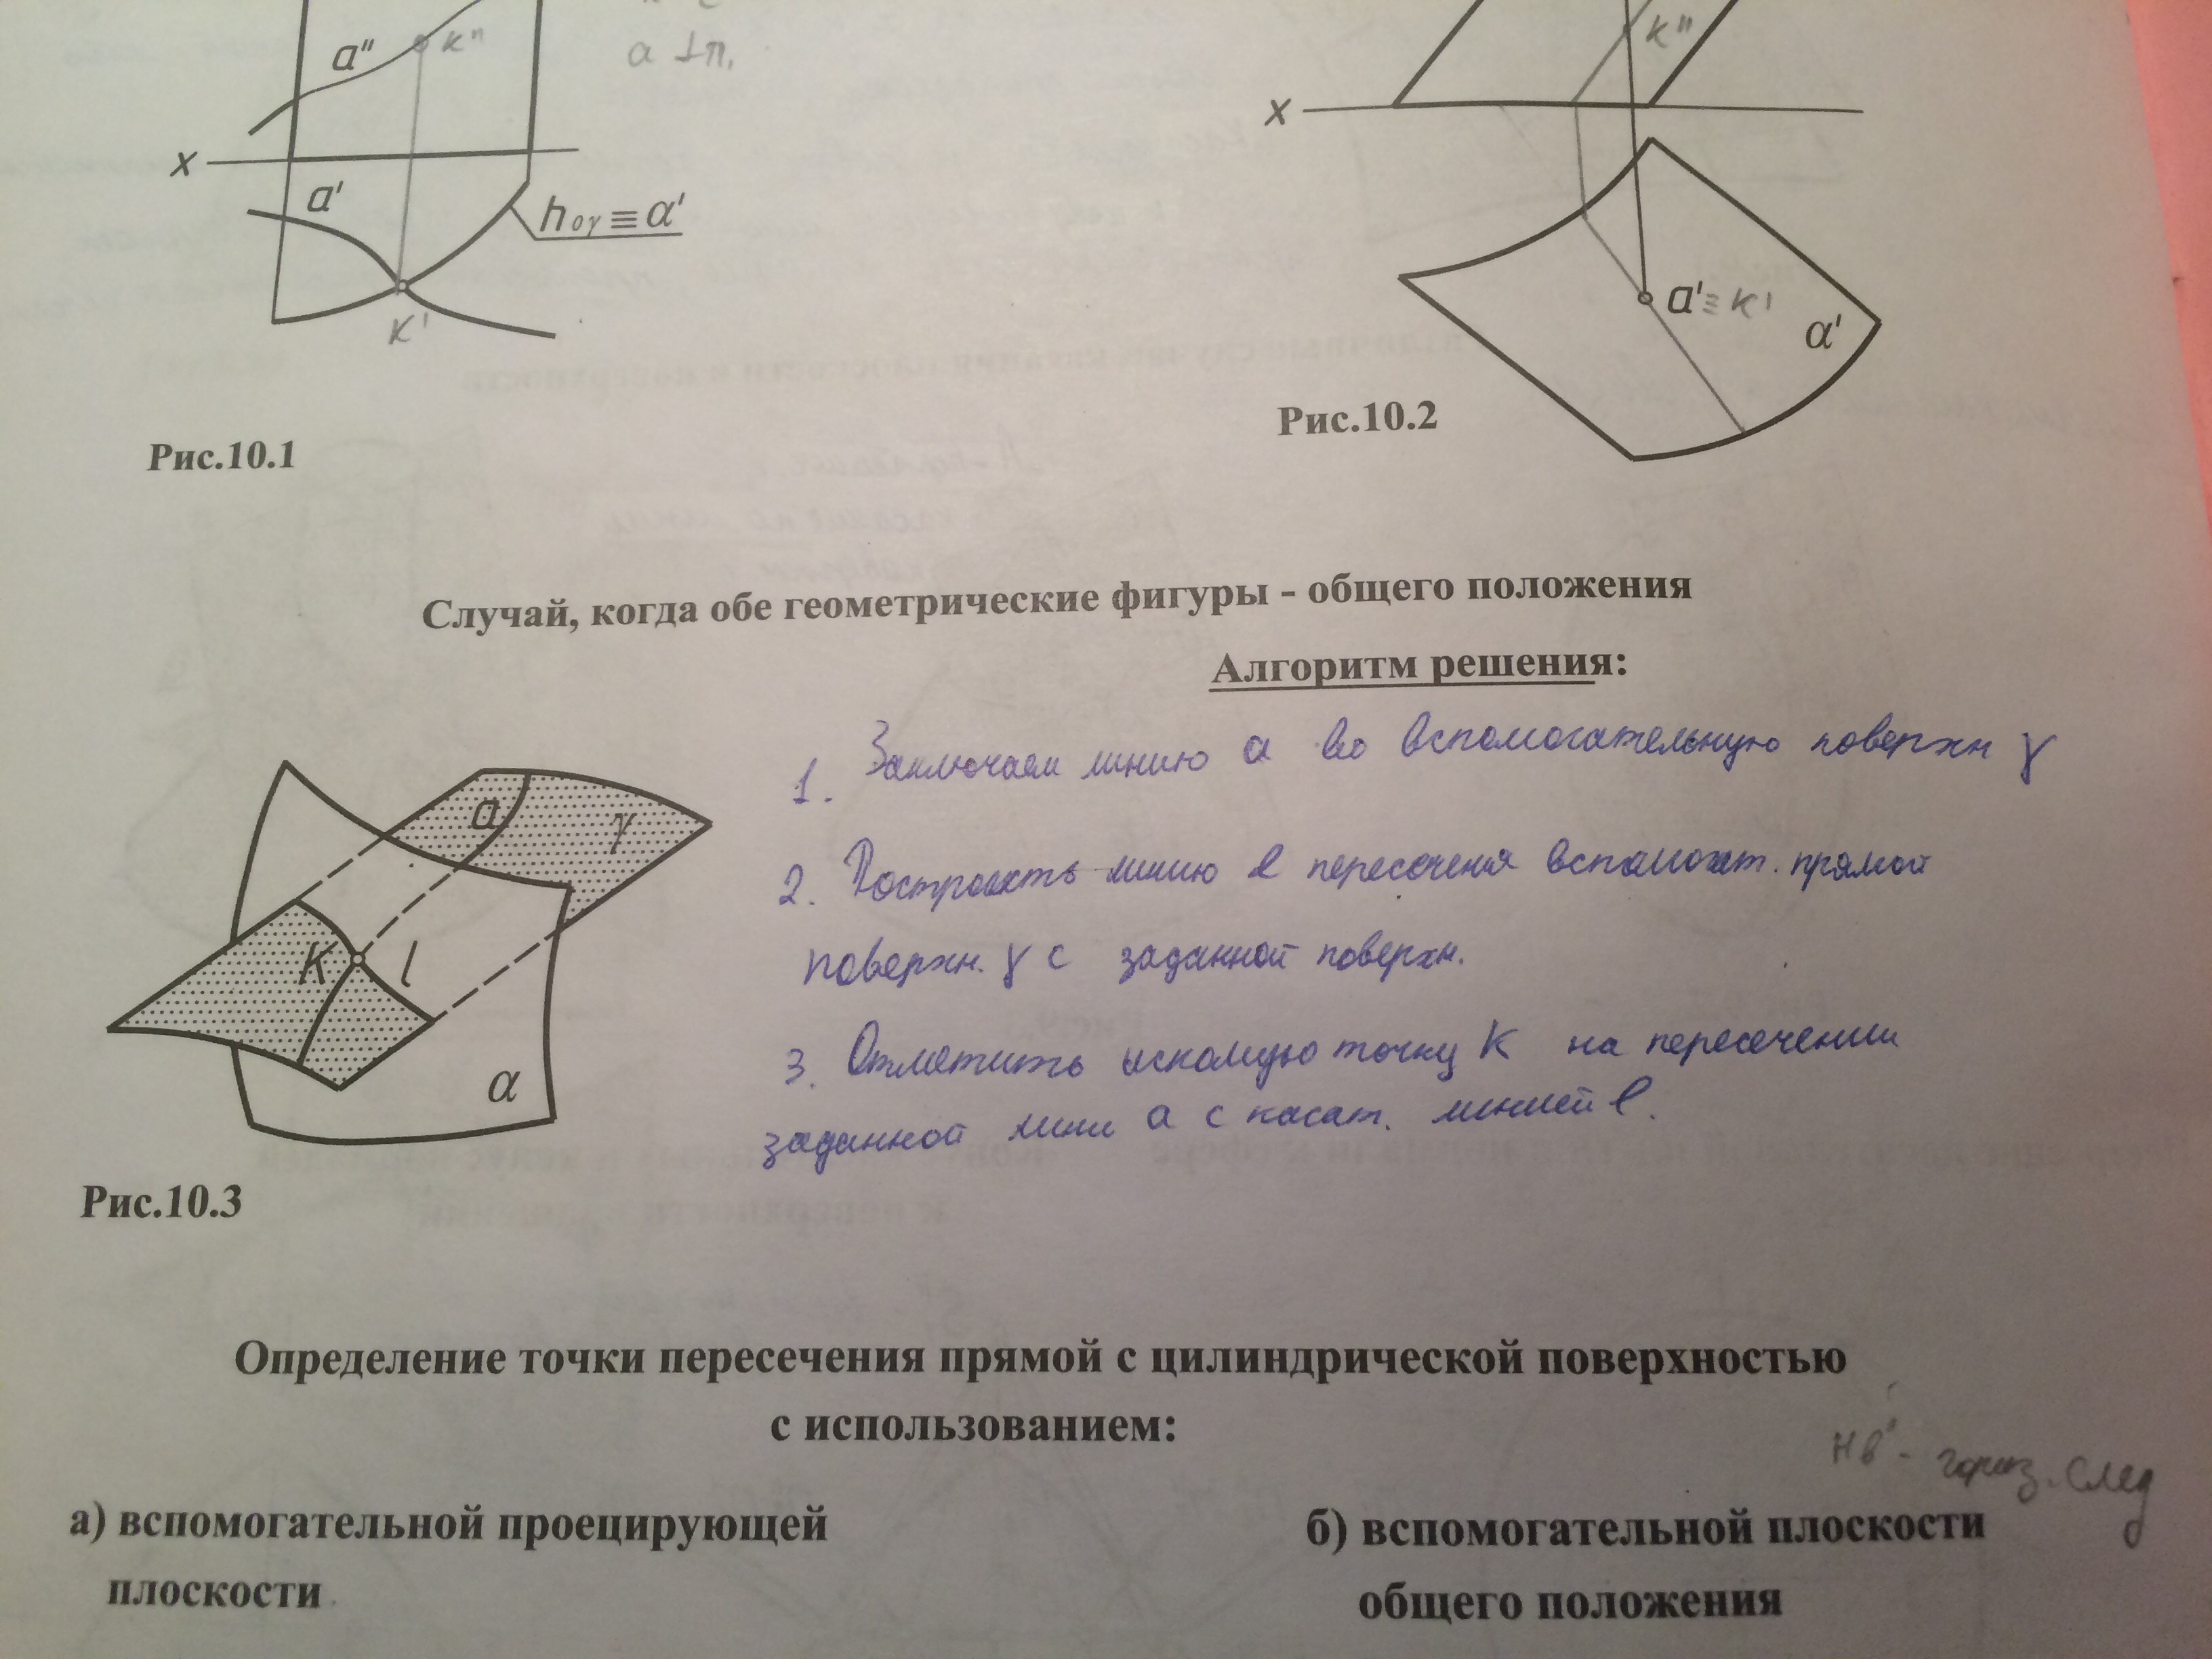 a"
K"
a ⊥ π₁
x
a'
h₀γ ≡ α'
K'
Рис.10.1
K"
x
a' ≡ K'
α'
Рис.10.2
Случай, когда обе геометрические фигуры - общего положения
Алгоритм решения:
1. Заключаем линию a во вспомогательную поверхн γ
2. Построить линию l пересечения вспомогат. прямой
поверхн. γ с заданной поверхн.
3. Отметить искомую точку K на пересечении
заданной лини a с касат. линией l.
a
γ
K
l
α
Рис.10.3
Определение точки пересечения прямой с цилиндрической поверхностью
с использованием:
Нв" - гориз. след
а) вспомогательной проецирующей
плоскости
б) вспомогательной плоскости
общего положения